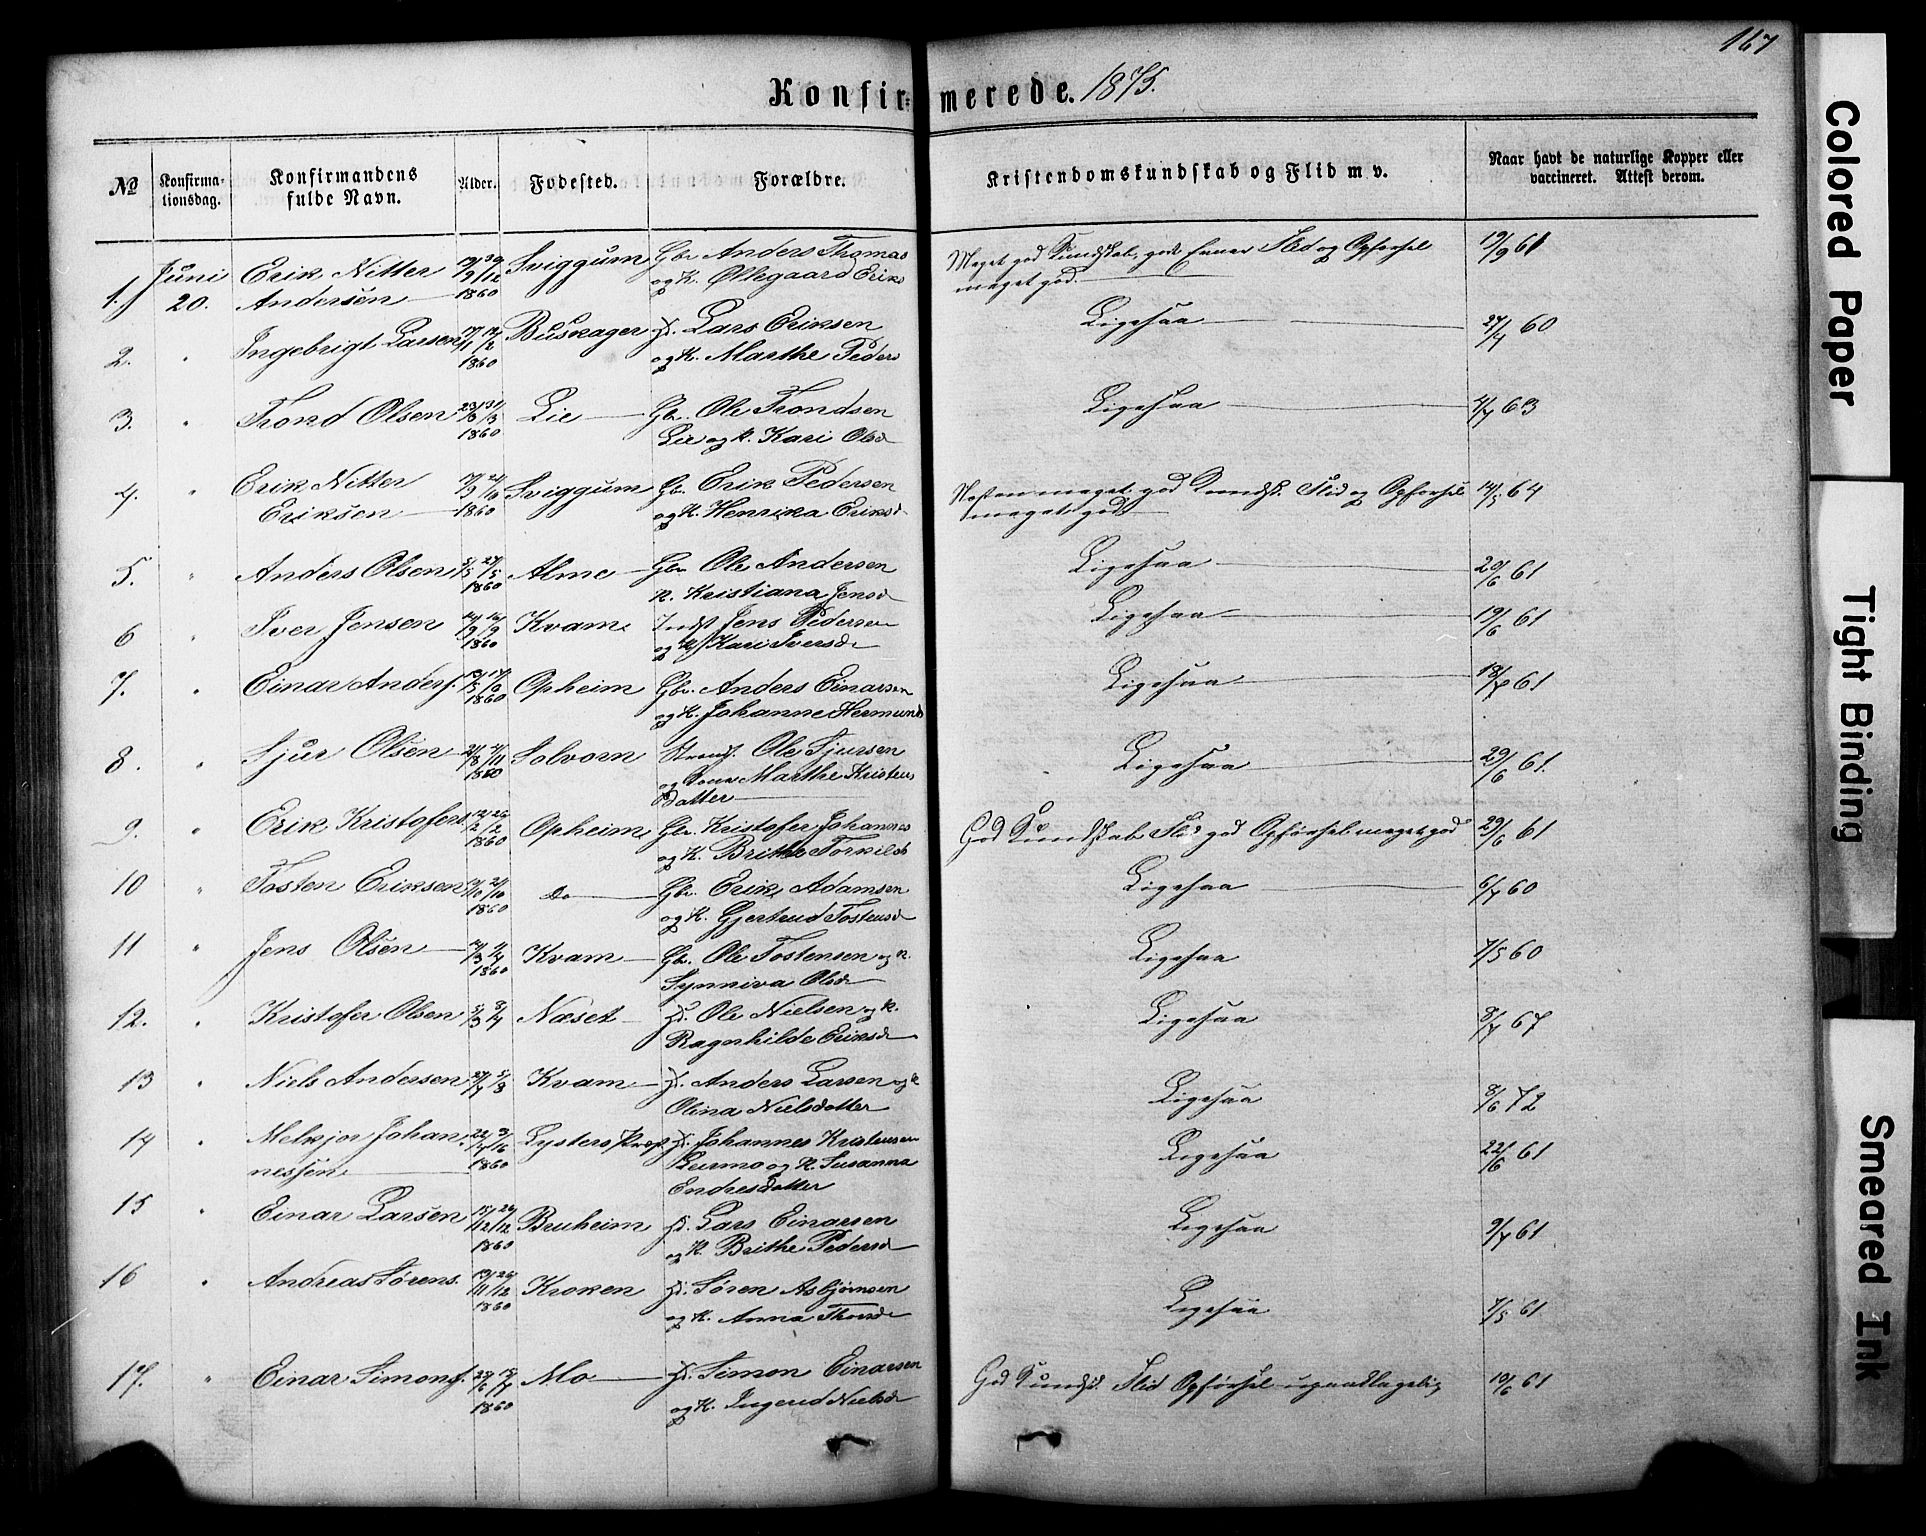 167
Konfirmerede. 1875.
No
Konfirmationsdag.
Konfirmandens fulde Navn.
Alder.
Fødested.
Forældre.
Kristendomskundskab og Flid m v.
Naar havt de naturlige Kopper eller vaccineret. Attest derom.
1. Juni 20. Erik Nitter Andersen 1860 Sviggum Gbr. Anders Thomas og K. Ollegaard Eriks Meget god Kundskab, gode Evner Flid og Opførsel meget god. 19/9 61
2. " Ingebrigt Larsen 1860 Buskager Lars Eriksen og K. Marthe Peders Ligesaa 27/4 60
3. " Trond Olsen 23/3 31/3 1860 Lie Gbr. Ole Trondsen Lie og K. Kari Olsd Ligesaa 4/7 63
4. " Erik Nitter Eriksen 1860 Sviggum Gbr. Erik Pedersen og K. Henrika Eriksd Næsten meget god Kundsk. Flid og Opførsel meget god 14/5 64
5. " Anders Olsen 5/5 27/5 1860 Alme Gbr. Ole Andersen K. Kristiana Jensd Ligesaa 20/6 61
6 " Iver Jensen 1860 Kvam Indst Jens Pedersen og K. Kari Iversd Ligesaa 19/6 61
7. " Einar Anders. 1860 Opheim Gbr. Anders Einarsen og K. Johanne Hermunds Ligesaa 18/7 61
8. " Sjur Olsen 1860 Solvorn Strands. Ole Sjursen og Kone Marthe Kristens Datter Ligesaa 29/6 61.
9. " Erik Kristofers 12/2 26/2 1860 Opheim Gbr. Kristofer Johannes og K. Brithe Torkilds God Kundskab Flid god Opførsel meget god 29/6 61
10 " Tosten Eriksen 1860 do Gbr. Erik Adamsen og K. Gjertrud Tostensd Ligesaa 6/7 60
11 " Jens Olsen 1860 Kvam Gbr. Ole Tostensen og K. Synniva Olsd Ligesaa 7/5 60
12. " Kristofer Olsen 5/3 8/4 Næset Ole Nielsen og K. Ragnhilde Eriksd Ligesaa 8/7 67
13 " Niels Andersen 27/7 5/8 Kvam Anders Larsen og K Olina Nielsdatter Ligesaa 8/6 72
14 " Melkjor Johannessen 1860 Lysters Præst. Johannes Kristensen og K Susanna Endresdatter Ligesaa 22/6 61
15 " Einar Larsen 15/12 26/12 1860 Bruheim Lars Einarsen og K. Brithe Pedersd Ligesaa 9/7 61
16 " Andreas Sørens. 19/11 26/12 1860 Kroken Søren Asbjørnsen og K. Anna Thorsd Ligesaa 7/5 61
17. " Einar Simons. 1860 Mo Simon Einarsen og K. Ingerid Nielsd God Kundsk. Flid Opførsel upaaklagelig 19/6 61
Colored Paper
Tight Binding
Smeared Ink